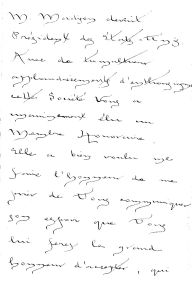 M. Madison devint
Président des États-Unis
Avec de tumultueux
applaudissements d'enthousiasme
cette Société Vous a
unanimement élu un
Membre Honoraire.
Elle a bien voulu me
faire l'honneur de me
prier de Vous communiquer
son espoir que Vous
lui ferez le grand
honneur d'accepter, qui